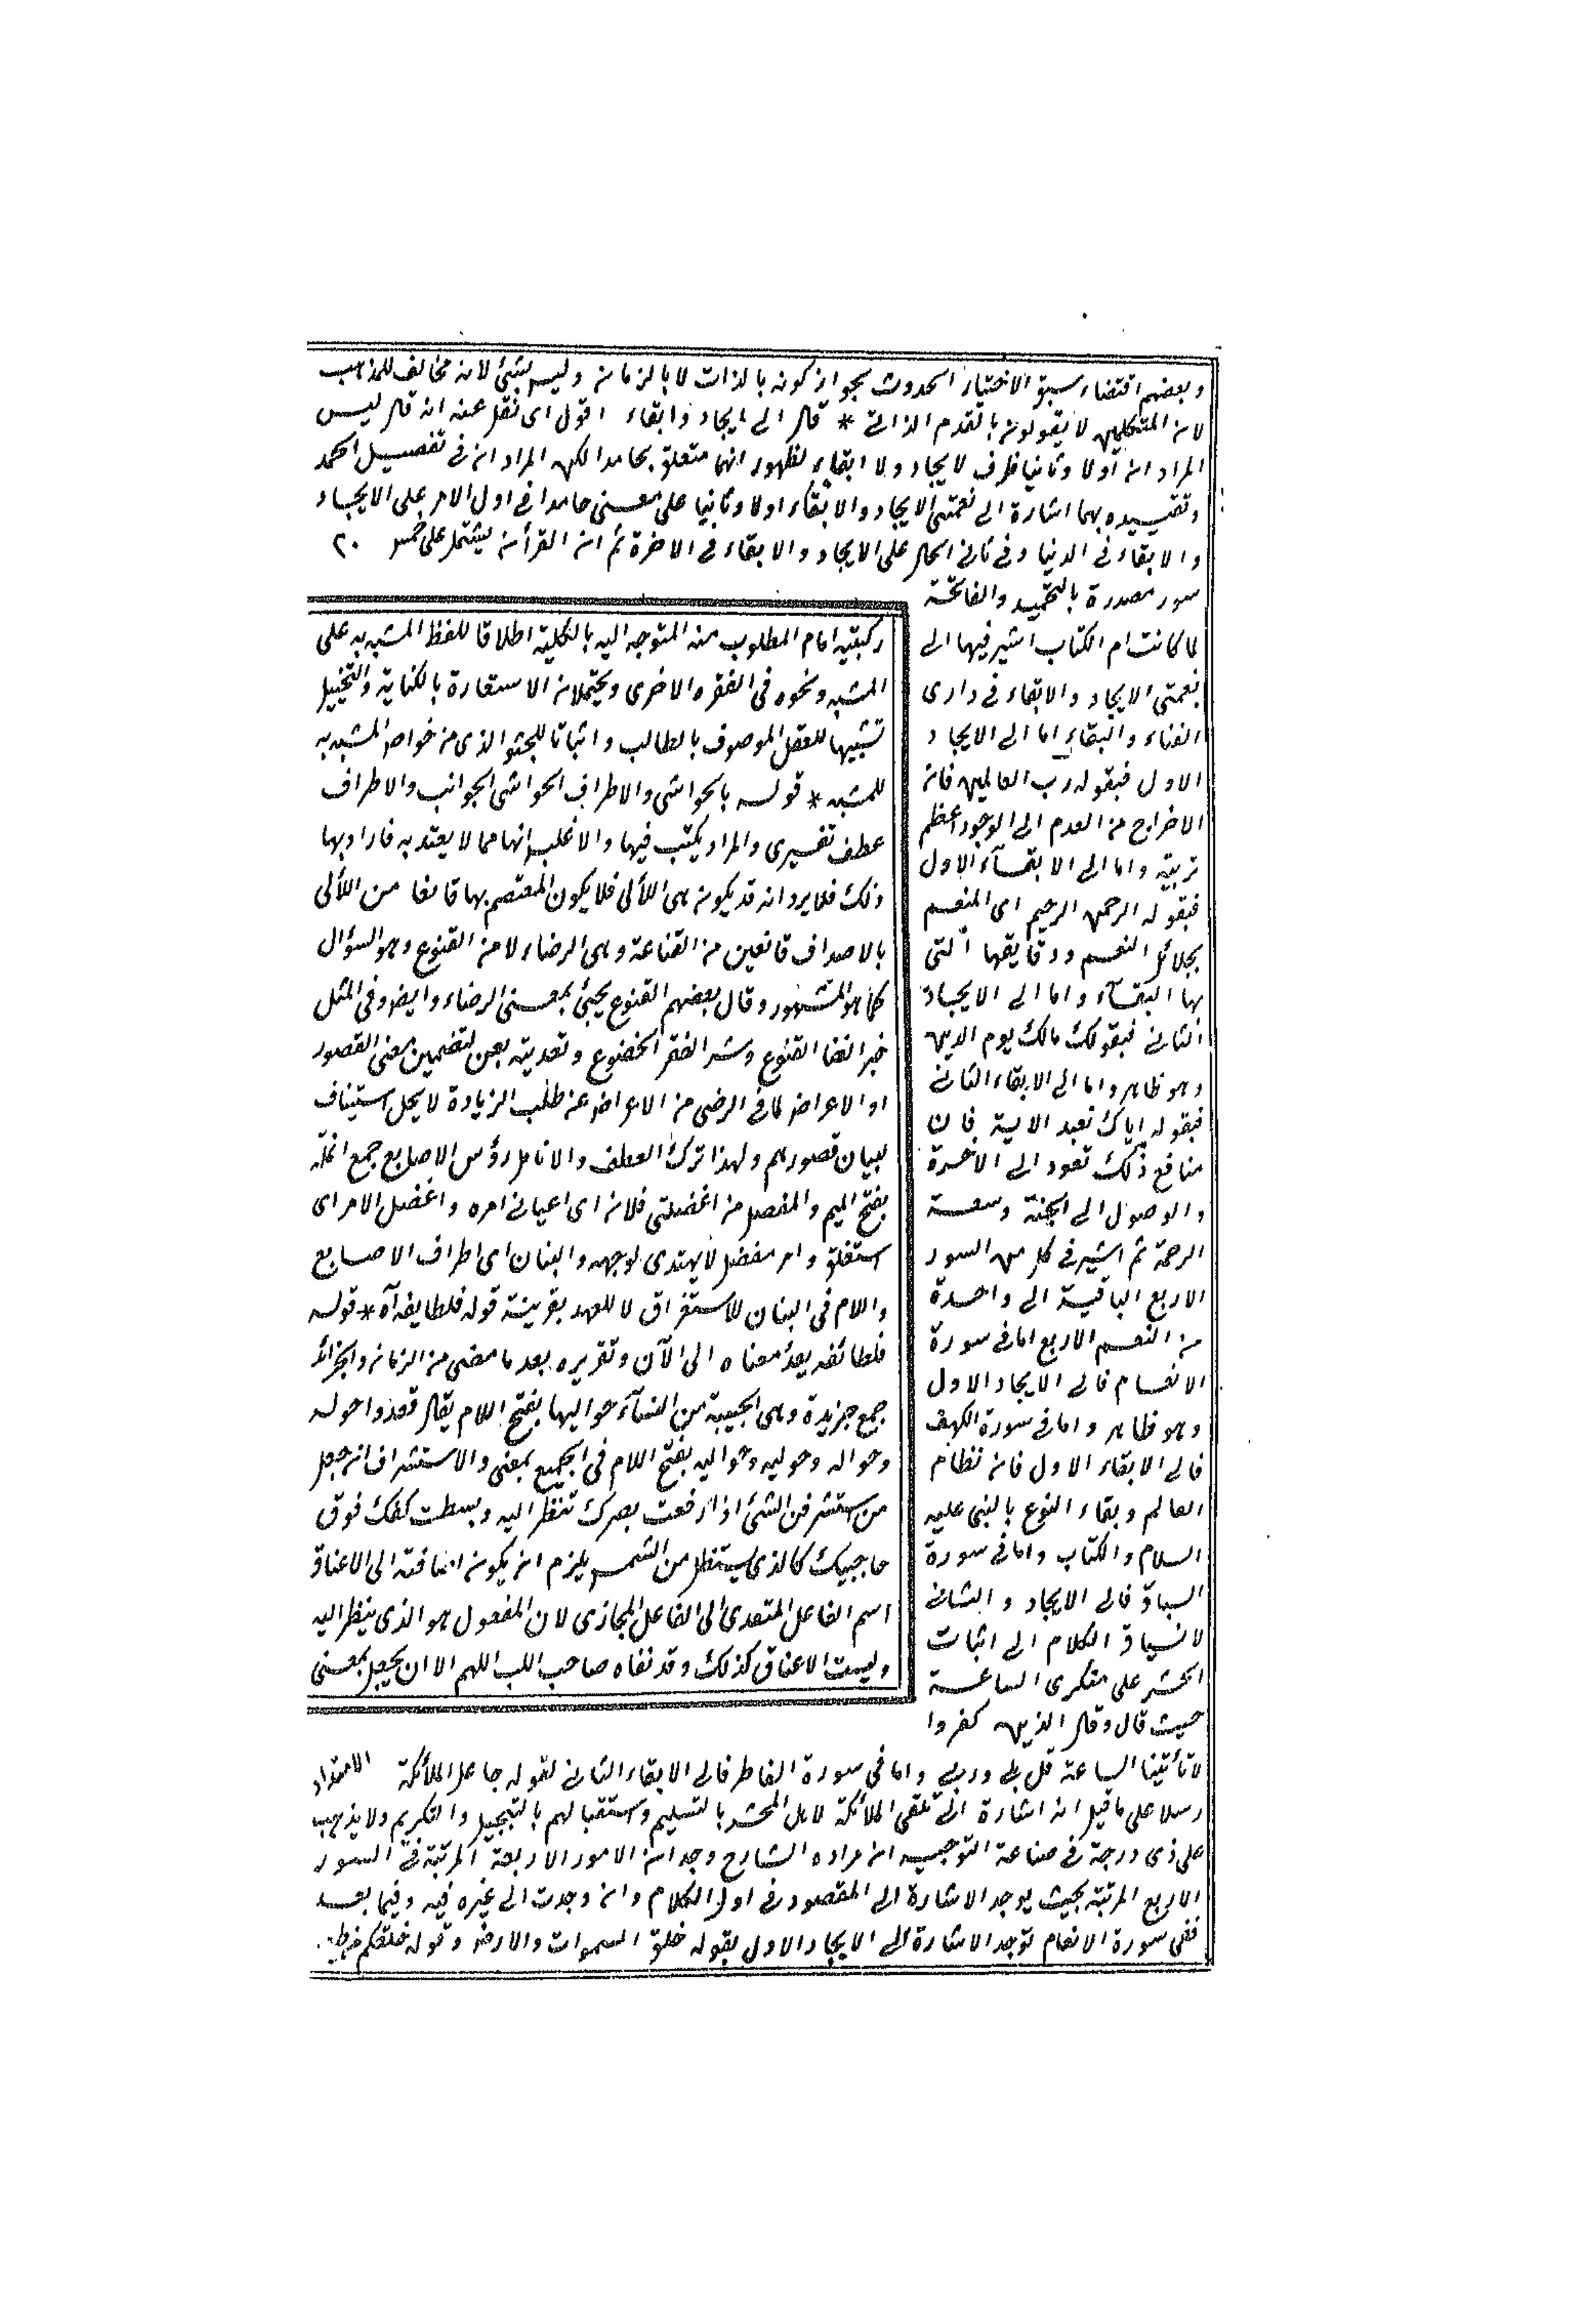 وبعضهم اقتضاء سبق الاختيار الحدوث بجواز كونه بالذات لا بالزمان وليس بشئ لانه مخالف للمذهب
لان المتكلمين لا يقولون بالقدم الذاتي * قال الى ايجاد وابقاء اقول اى نقل عنه انه قال ليس
المراد ان اولا وثانيا ظرف لايجاد ولا ابقاء لظهور انهما متعلق بحامدا لكن المراد ان فى تفصيل الحمد
وتقييده بهما اشارة الى نعمتى الايجاد والابقاء اولا وثانيا على معنى حامدا فى اول الامر على الايجاد
والابقاء فى الدنيا وفى ثانى الحال على الايجاد والابقاء فى الاخرة ثم ان القرأن يشتمل على خمس ٢٠
سور مصدرة بالتحميد والفاتحة
لما كانت ام الكتاب اشير فيها الى
نعمتى الايجاد والابقاء فى دارى
الفناء والبقاء اما الى الايجاد
الاول فبقوله رب العالمين فان
الاخراج من العدم الى الوجود اعظم
تربية واما الى الابقآء الاول
فبقوله الرحمن الرحيم اى المنعم
بجلائل النعم ودقايقها التى
بها البقآء واما الى الايجاد
الثانى فبقولك مالك يوم الدين
وهو ظاهر واما الى الابقاء الثانى
فبقوله اياك نعبد الاية فان
منافع ذلك تعود الى الاخرة
والوصول الى الجنة وسعة
الرحمة ثم اشير فى كل من السور
الاربع الباقية الى واحدة
من النعم الاربع اما فى سورة
الانعام فالى الايجاد الاول
وهو ظاهر واما فى سورة الكهف
فالى الابقاء الاول فان نظام
العالم وبقاء النوع بالنبى عليه
السلام والكتاب واما فى سورة
السباء فالى الايجاد والثانى
لانسياق الكلام الى اثبات
الحشر على منكرى الساعة
حيث قال وقال الذين كفروا
لا تأتينا الساعة قل بلى وربى واما فى سورة الفاطر فالى الابقاء الثانى لقوله جاعل الملائكة
رسلا على ما قيل انه اشارة الى تلقى الملائكة لاهل المحشر بالتسليم واستقبالهم بالتبجيل والتكريم ولا يذهب
على ذى درجة فى صناعة التوجيه ان مراده الشارح وجد ان الامور الاربعة المرتبة فى السور
الاربع المرتبة بحيث يوجد الاشارة الى المقصود فى اول الكلام وان وجدت الى غيره فيه وفيما بعد
ففى سورة الانعام توجد الاشارة الى الايجاد الاول بقوله خلق السموات والارض وقوله خلقكم من طين
ركبتيه امام المطلوب منه المتوجه اليه بالكلية اطلاقا للفظ المشبه به على
المشبه ونحوه فى الفقره الاخرى ويحتملان الاستعارة بالكناية والتخييل
تشبيها للعقل الموصوف بالطالب واثباتا للجثو الذى من خواص المشبه به
للمشبه * قوله بالحواشى والاطراف الحواشى الجوانب والاطراف
عطف تفسيرى والمراد يكتب فيها والاغلب انها مما لا يعتد به فاراد بها
ذلك فلا يرد انه قد يكون هى اللألى فلا يكون المعتصم بها قانعا من اللألى
بالاصداف قانعين من القناعة وهى الرضاء لا من القنوع وهو السؤال
كما هو المشهور وقال بعضهم القنوع يجيئ بمعنى الرضاء وايضا وفى المثل
خير الغنا القنوع وشر الفقر الخضوع وتعديته بعن لتضمين معنى القصور
او الاعراض لما فى الرضى من الاعراض عن طلب الزيادة لا يحل استيناف
لبيان قصورهم ولهذا ترك العطف والانامل رؤس الاصابع جمع انملة
بفتح الميم والمعضل من اعضلنى فلان اى اعيانى امره واعضل الامر اى
استغلق وامر معضل لا يهتدى لوجهه والبنان اى اطراف الاصابع
واللام فى البنان للاستغراق لا للعهد بقرينة قوله فلطايفه آه * قوله
فلطائفه بعد معناه الى الآن وتقريره بعد ما مضى من الزمان والخرائد
جمع خريدة وهى الحييية من النسآء حواليها بفتح اللام يقال قعدوا حوله
وحواله وحوليه وحواليه بفتح اللام فى الجميع بمعنى والاستشراف ان جعل
من استشرفن الشئ اذا رفعت بصرك تنظر اليه وبسطت كفك فوق
حاجبيك كالذى يستظل من الشمس يلزم ان يكون اضافته الى الاعناق
اسم الفاعل المتعدى الى الفاعل المجازى لان المفعول هو الذى ينظر اليه
وليست الاعناق كذلك وقد نفاه صاحب اللب اللهم الا ان يجعل بمعنى
الامتداد